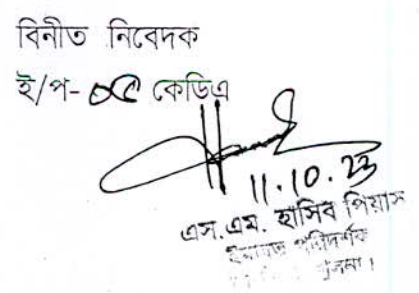 বিনীত নিবেদক
ই/প-০৫ কেডিএ
11.10.23
এস.এম. হাসিব পিয়াস
ইমারত পরিদর্শক
খুলনা।